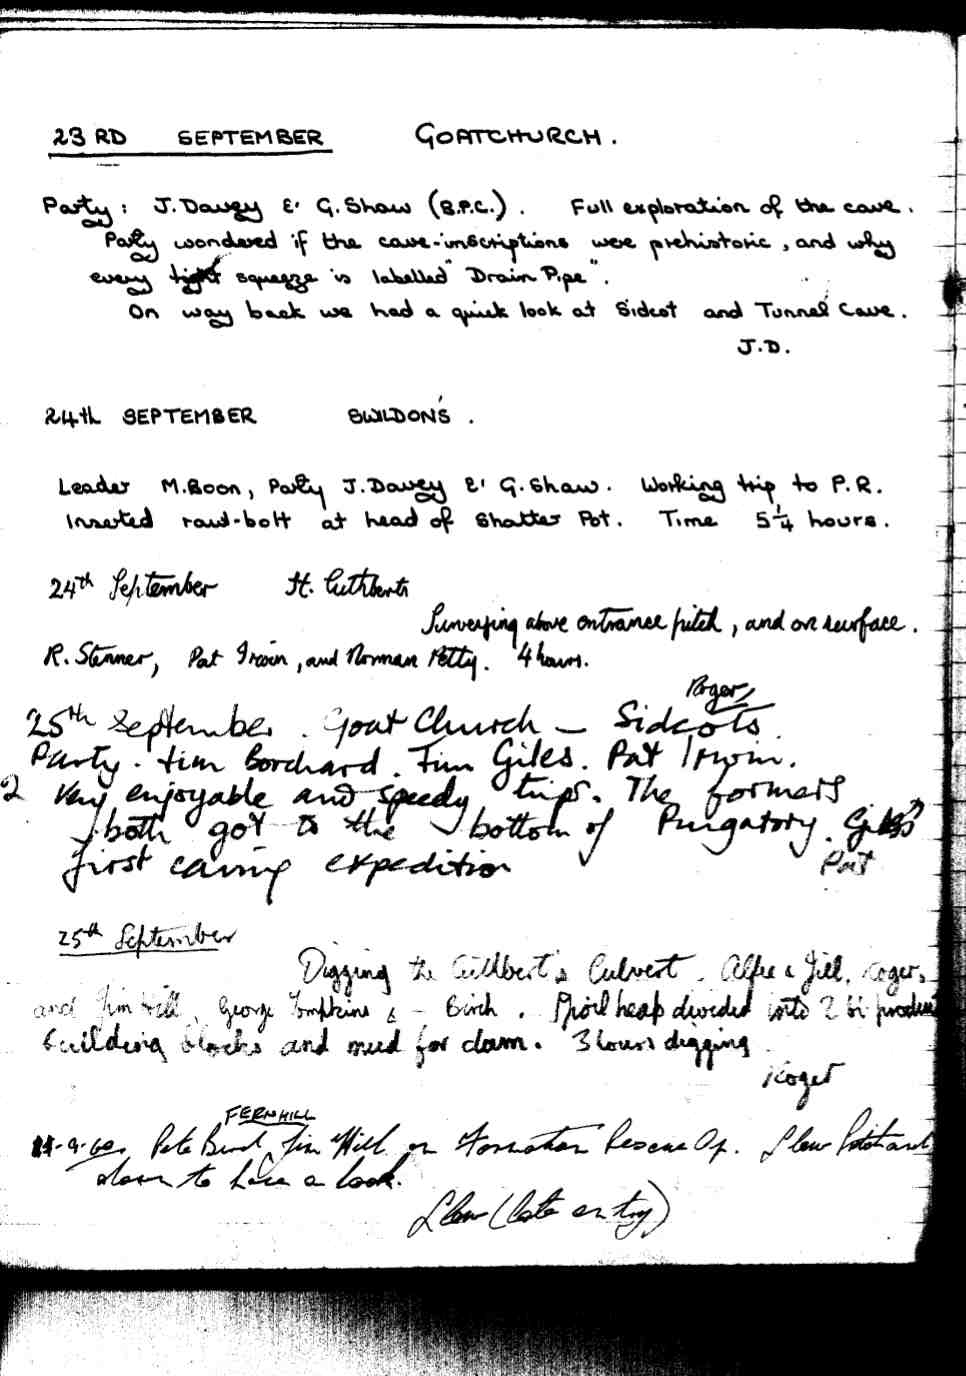 23RD SEPTEMBER GOATCHURCH.
Party: J. Davey & G. Shaw (B.P.C.). Full exploration of the cave.
Party wondered if the cave-inscriptions were prehistoric, and why
every tight squeeze is labelled "Drain Pipe".
On way back we had a quick look at Sidcot and Tunnel Cave.
J.D.
24th SEPTEMBER SWILDON'S.
Leader M. Boon, Party J. Davey & G. Shaw. Working trip to P.R.
Inserted rawl-bolt at head of Shatter Pot. Time 5¼ hours.
24th September St. Cuthberts
Surveying above entrance pitch, and on surface.
R. Stenner, Pat Irwin, and Norman Petty. 4 hours.
Roger,
25th September. Goat Church – Sidcots.
Party. Jim Borchard. Jim Giles. Pat Irwin.
2 Very enjoyable and speedy trips. The formers
both got to the bottom of Purgatory. Giles'
first caving expedition
Pat
25th September
Digging the Cuthbert's Culvert. Alfie & Jill, Roger,
and Jim Hill, George Tompkins & – Birch. Spoil heap divided into 2 bi-products
building blocks and mud for dam. 3 hours digging
Roger
FERNHILL
-9-60. Pete Jim Hill on Formation Rescue Op. Slew
down to have a look.
Slew (late entry)